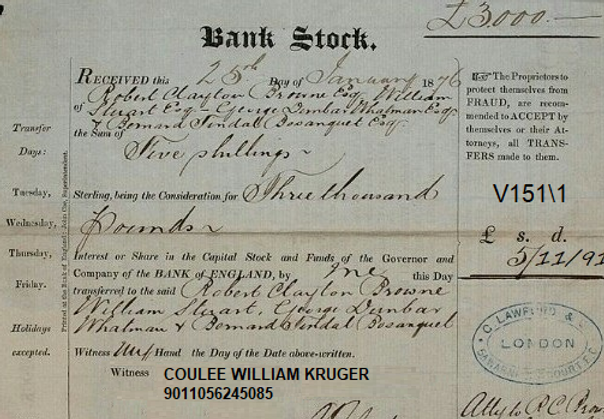 £3000.—
Bank Stock.
RECEIVED this 25th Day of January 1876
of Robert Clayton Browne Esq William
Stuart Esq George Dunbar Whatman Esq
& Bernard Tindal Bosanquet Esq
the Sum of
Five shillings
Sterling, being the Consideration for Three thousand
Pounds
Interest or Share in the Capital Stock and Funds of the Governor and
Company of the BANK of ENGLAND, by me this Day
transferred to the said Robert Clayton Browne
William Stuart, George Dunbar
Whatman & Bernard Tindal Bosanquet
Witness my Hand the Day of the Date above-written.
Witness
COULEE WILLIAM KRUGER
9011056245085
Transfer
Days:
Tuesday,
Wednesday,
Thursday,
Friday.
Holidays
excepted.
Printed at the Bank of England: John Coe, Superintendent.
The Proprietors to
protect themselves from
FRAUD, are recom-
mended to ACCEPT by
themselves or their At-
torneys, all TRANS-
FERS made to them.
V151\1
£ s. d.
5/11/91
C. LAWFORD & C
LONDON
Atty to R C Brow